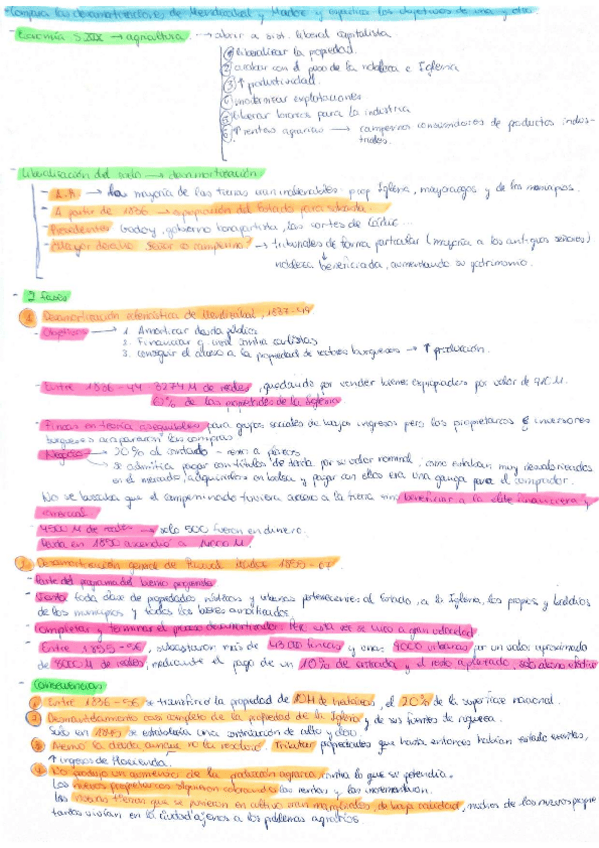 Compara las desamortizaciones de Mendizábal y Madoz y especifica los objetivos de una y otra
- Economía S.XIX → agricultura → abrir a sist. liberal capitalista
① liberalizar la propiedad.
② acabar con el peso de la nobleza e Iglesia
③ ↑ productividad.
④ modernizar explotaciones
⑤ liberar brazos para la industria
⑥ ↑ rentas agrarias → campesinos consumidores de productos indus-
triales.
- Liberalización del suelo → desamortización
- A.R. → la mayoría de las tierras eran inalienables: prop Iglesia, mayorazgos y de los municipios.
- A partir de 1836 → expropiación del Estado para subasta.
- Precedentes: Godoy, gobierno bonapartista, las cortes de Cádiz...
- Mayor desafío: Señor o campesino? → tribunales de forma particular (mayoría a los antiguos señores)
nobleza beneficiada, aumentando su patrimonio.
- 2 fases
① Desamortización eclesiástica de Mendizábal, 1837-49
- Objetivos → 1. Amortizar deuda pública
2. Financiar g. civil contra carlistas
3. conseguir el acceso a la propiedad de sectores burgueses → ↑ producción.
- Entre 1836-44 3274 M de reales, quedando por vender bienes expropiados por valor de M.
62% de las propiedades de la Iglesia
- Fincas en teoría asequibles para grupos sociales de bajos ingresos pero los propietarios e inversores
burgueses acapararon las compras.
- Negocio → 20% al contado - resto a plazos
→ se admitía pagar con títulos de deuda por su valor nominal, como estaban muy desvalorizados
en el mercado, adquirirlos en bolsa y pagar con ellos era una ganga para el comprador.
No se buscaba que el campesinado tuviera acceso a la tierra sino beneficiar a la élite financiera y
comercial.
- 4500 M de reales → solo 500 fueron en dinero.
- Deuda en 1850 ascendió a M.
2. Desamortización general de Pascual Madoz 1855-67
- Parte del programa del bienio progresista
- Sacó toda clase de propiedades rústicas y urbanas pertenecientes al Estado, a la Iglesia, los propios y baldíos
de los municipios y todos los bienes amortizados.
- Completar y terminar el proceso desamortizador. Por esta vez se llevó a gran velocidad
- Entre 1855-56, subastaron más de 43.000 fincas y unas 9000 urbanas por un valor aproximado
de M de reales, mediante el pago de un 10% de entrada y el resto aplazado, solo
- Consecuencias
① Entre 1836-56 se transfirió la propiedad de 10M de hectáreas, el 20% de la superficie nacional.
② Desmantelamiento casi completo de la propiedad de la Iglesia y de sus fuentes de riqueza.
Solo en 1845 se establecería una contribución de culto y clero.
③ Atenuó la deuda aunque no la resolvió. Tributar propiedades que hasta entonces habían estado exentas,
↑ ingresos de Hacienda.
④ No produjo un aumento de la producción agraria, contra lo que se pretendía.
Los nuevos propietarios siguieron cobrando las rentas y las incrementaron.
Las nuevas tierras que se pusieron en cultivo eran marginales, de baja calidad, muchos de los nuevos propie-
tarios vivían en la ciudad ajenos a los problemas agrarios.